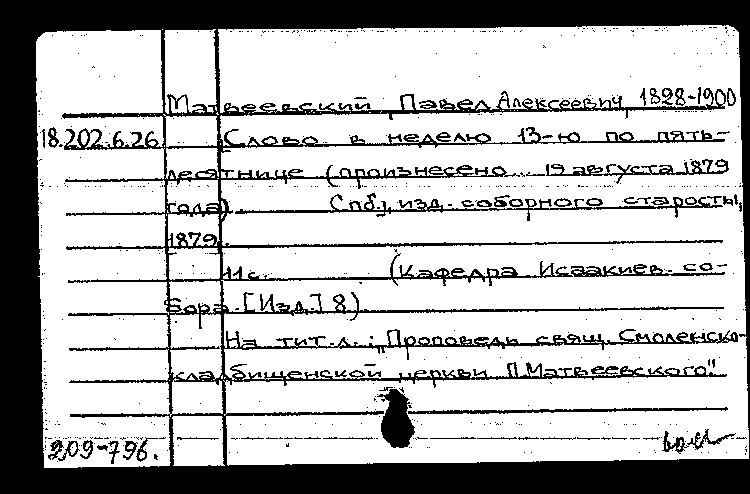 Матвеевский, Павел Алексеевич, 1828-1900
18.202.6.26 Слово в неделю 13-ю по пять-
десятнице (произнесено 19 августа 1879
года). Спб., изд. соборного старосты,
1879.
11 с. (Кафедра Исаакиев. со-
бора. [Изд.] 8)
На тит. л.: "Проповедь свящ. Смоленско-
кладбищенской церкви П. Матвеевского."
209-796.